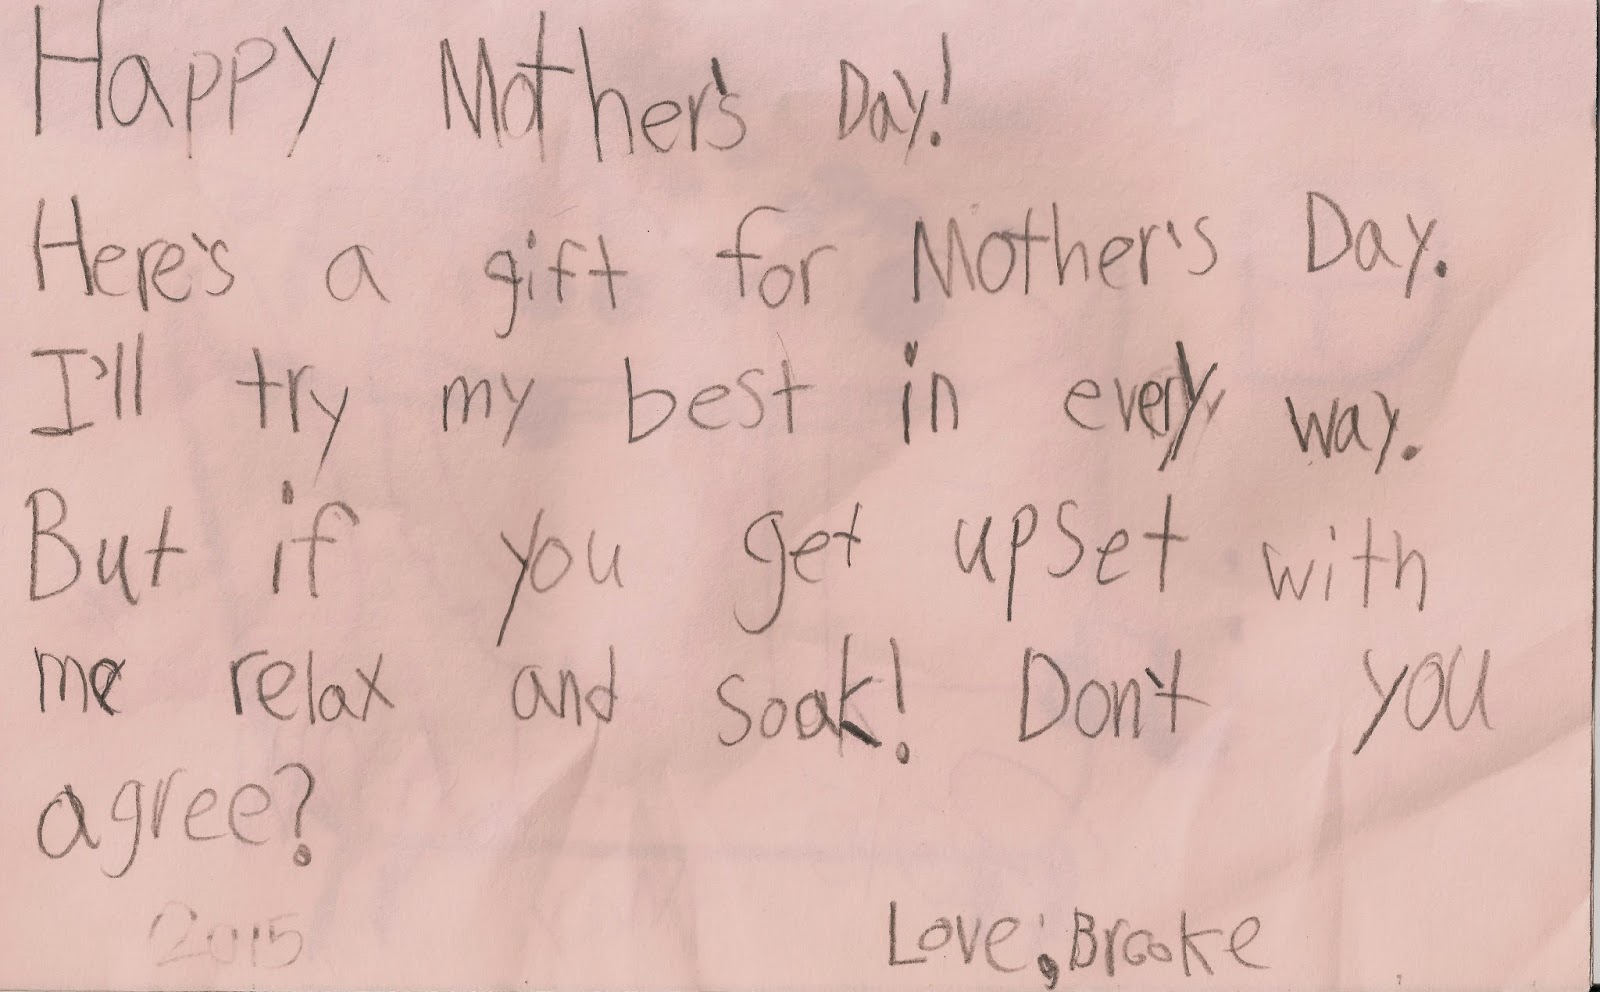 Happy Mother's Day!
Here's a gift for Mother's Day.
I'll try my best in every way.
But if you get upset with
me relax and soak! Don't you
agree?
2015
Love, Brooke